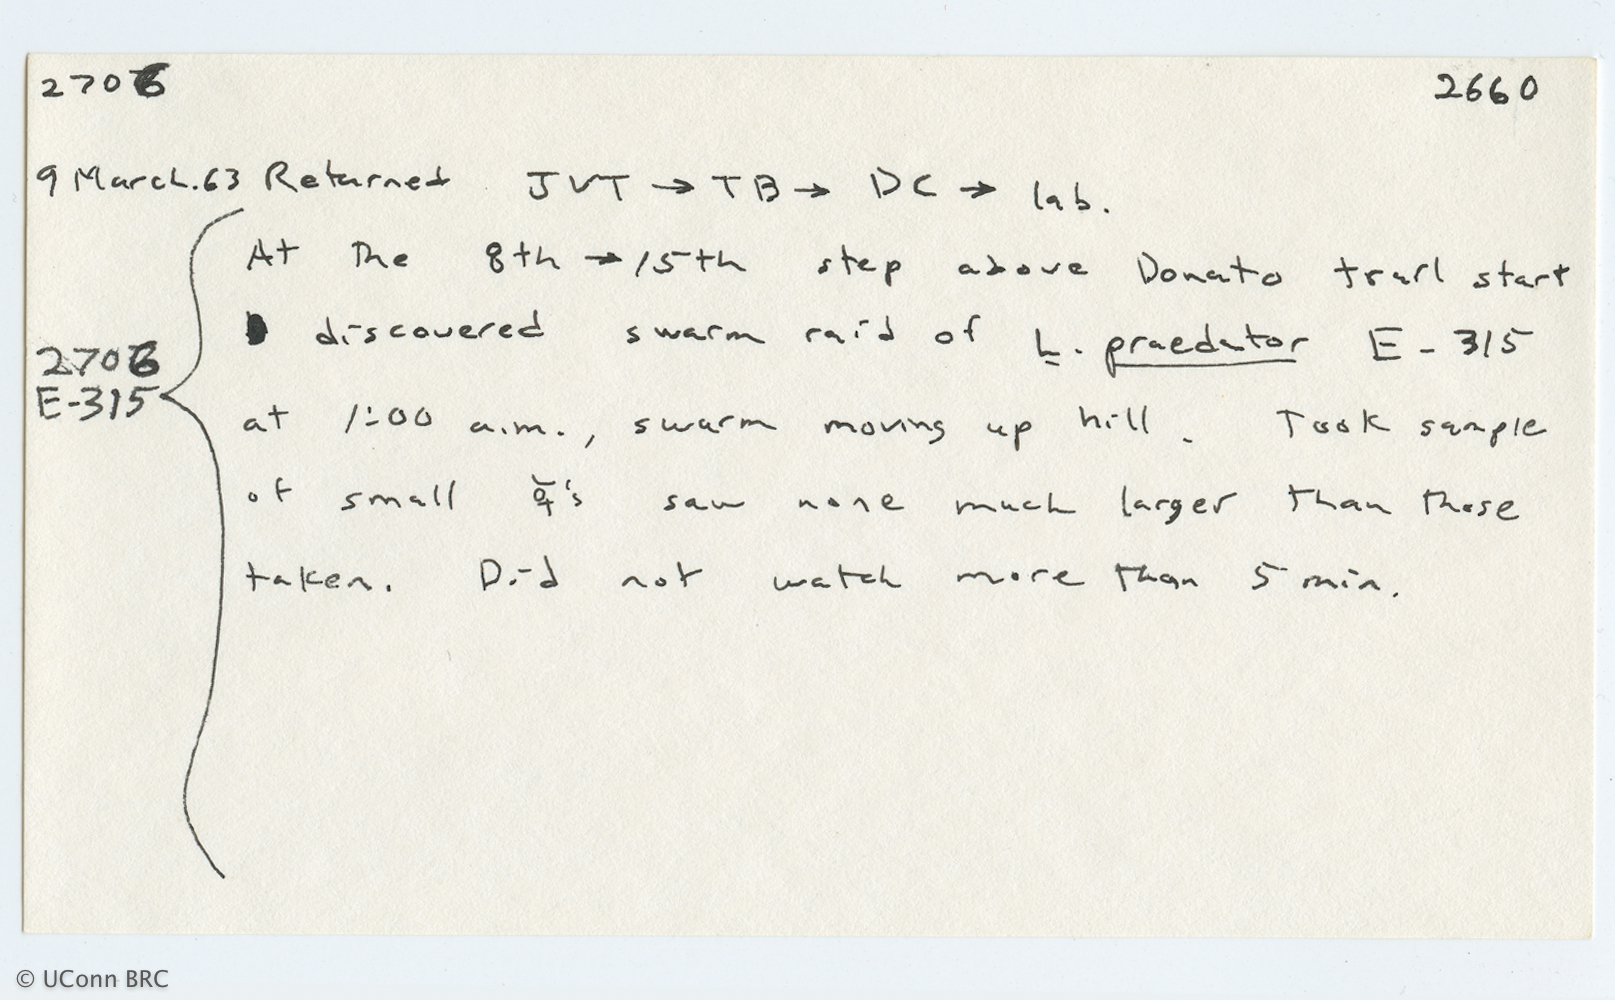 2706 2660
9 March.63 Returned JVT → TB → DC → lab.
At the 8th → 15th step above Donato trail start
discovered swarm raid of L. praedator E-315
2706
E-315
at 1:00 a.m., swarm moving up hill. Took sample
of small ☿'s saw none much larger than those
taken. Did not watch more than 5 min.
© UConn BRC